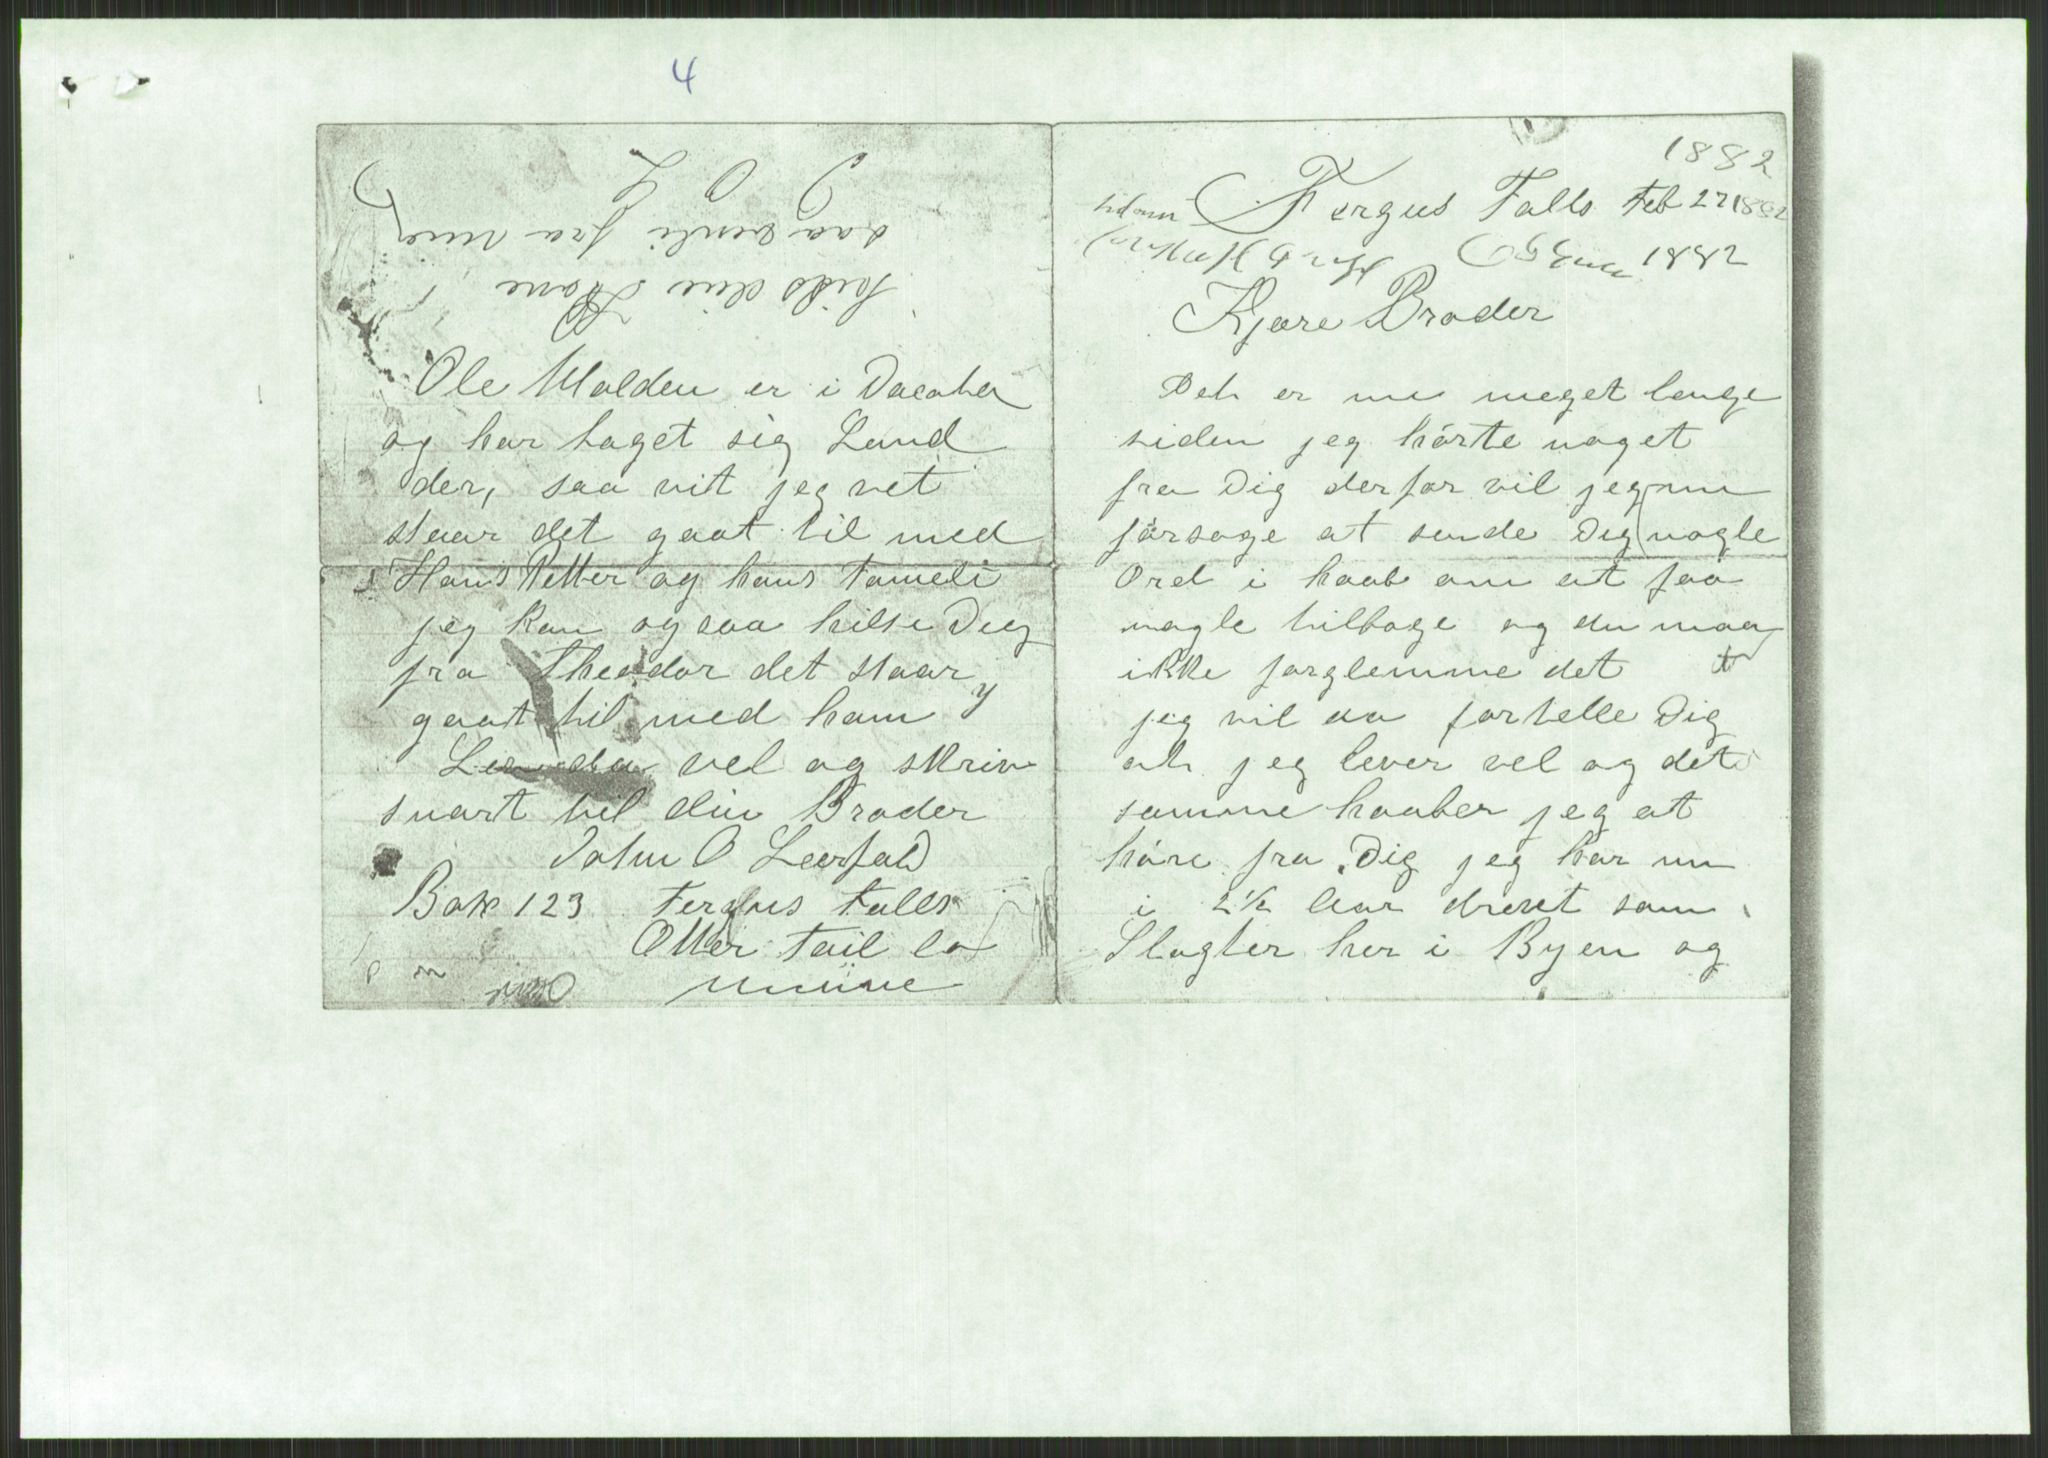 4
1882
Fergus Falls Feb 27 1882
1882
Kjære Broder
Deh er nu meget lenge
siden jeg hörte noget
fra Dig derfor vil jeg nu
försoge at sende Dig nogle
Ord i haab om at faa
nogle tilbage og du maa
ikke forglemme det
jeg vil da fortelle Dig
ah jeg lever vel og det
samme haaber jeg at
höre fra Dig jeg har nu
i 2½ Aar drevet som
Slagter her i Byen og
Ole Molden er i Dacota
og har taget sig Land
der, saa vit jeg vet
staar det gaat til med
Hans Petter og hans Fameli
jeg kan ogsaa hilse Dig
fra Theodor det staar
gaat til med ham
Lev da vel og skriv
snart til din Broder
John O Leerfald
Box 123 Fergus Falls
Otter Tail Co
Minne
hils din Kone
saa venli fra mig
J O L